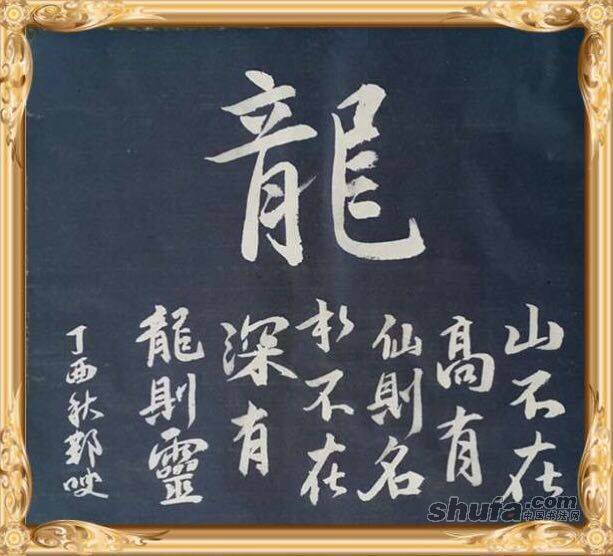 龍
山不在
高有
仙則名
水不在
深有
龍則靈
丁酉秋鄞叟
shufa.com
中国书法网